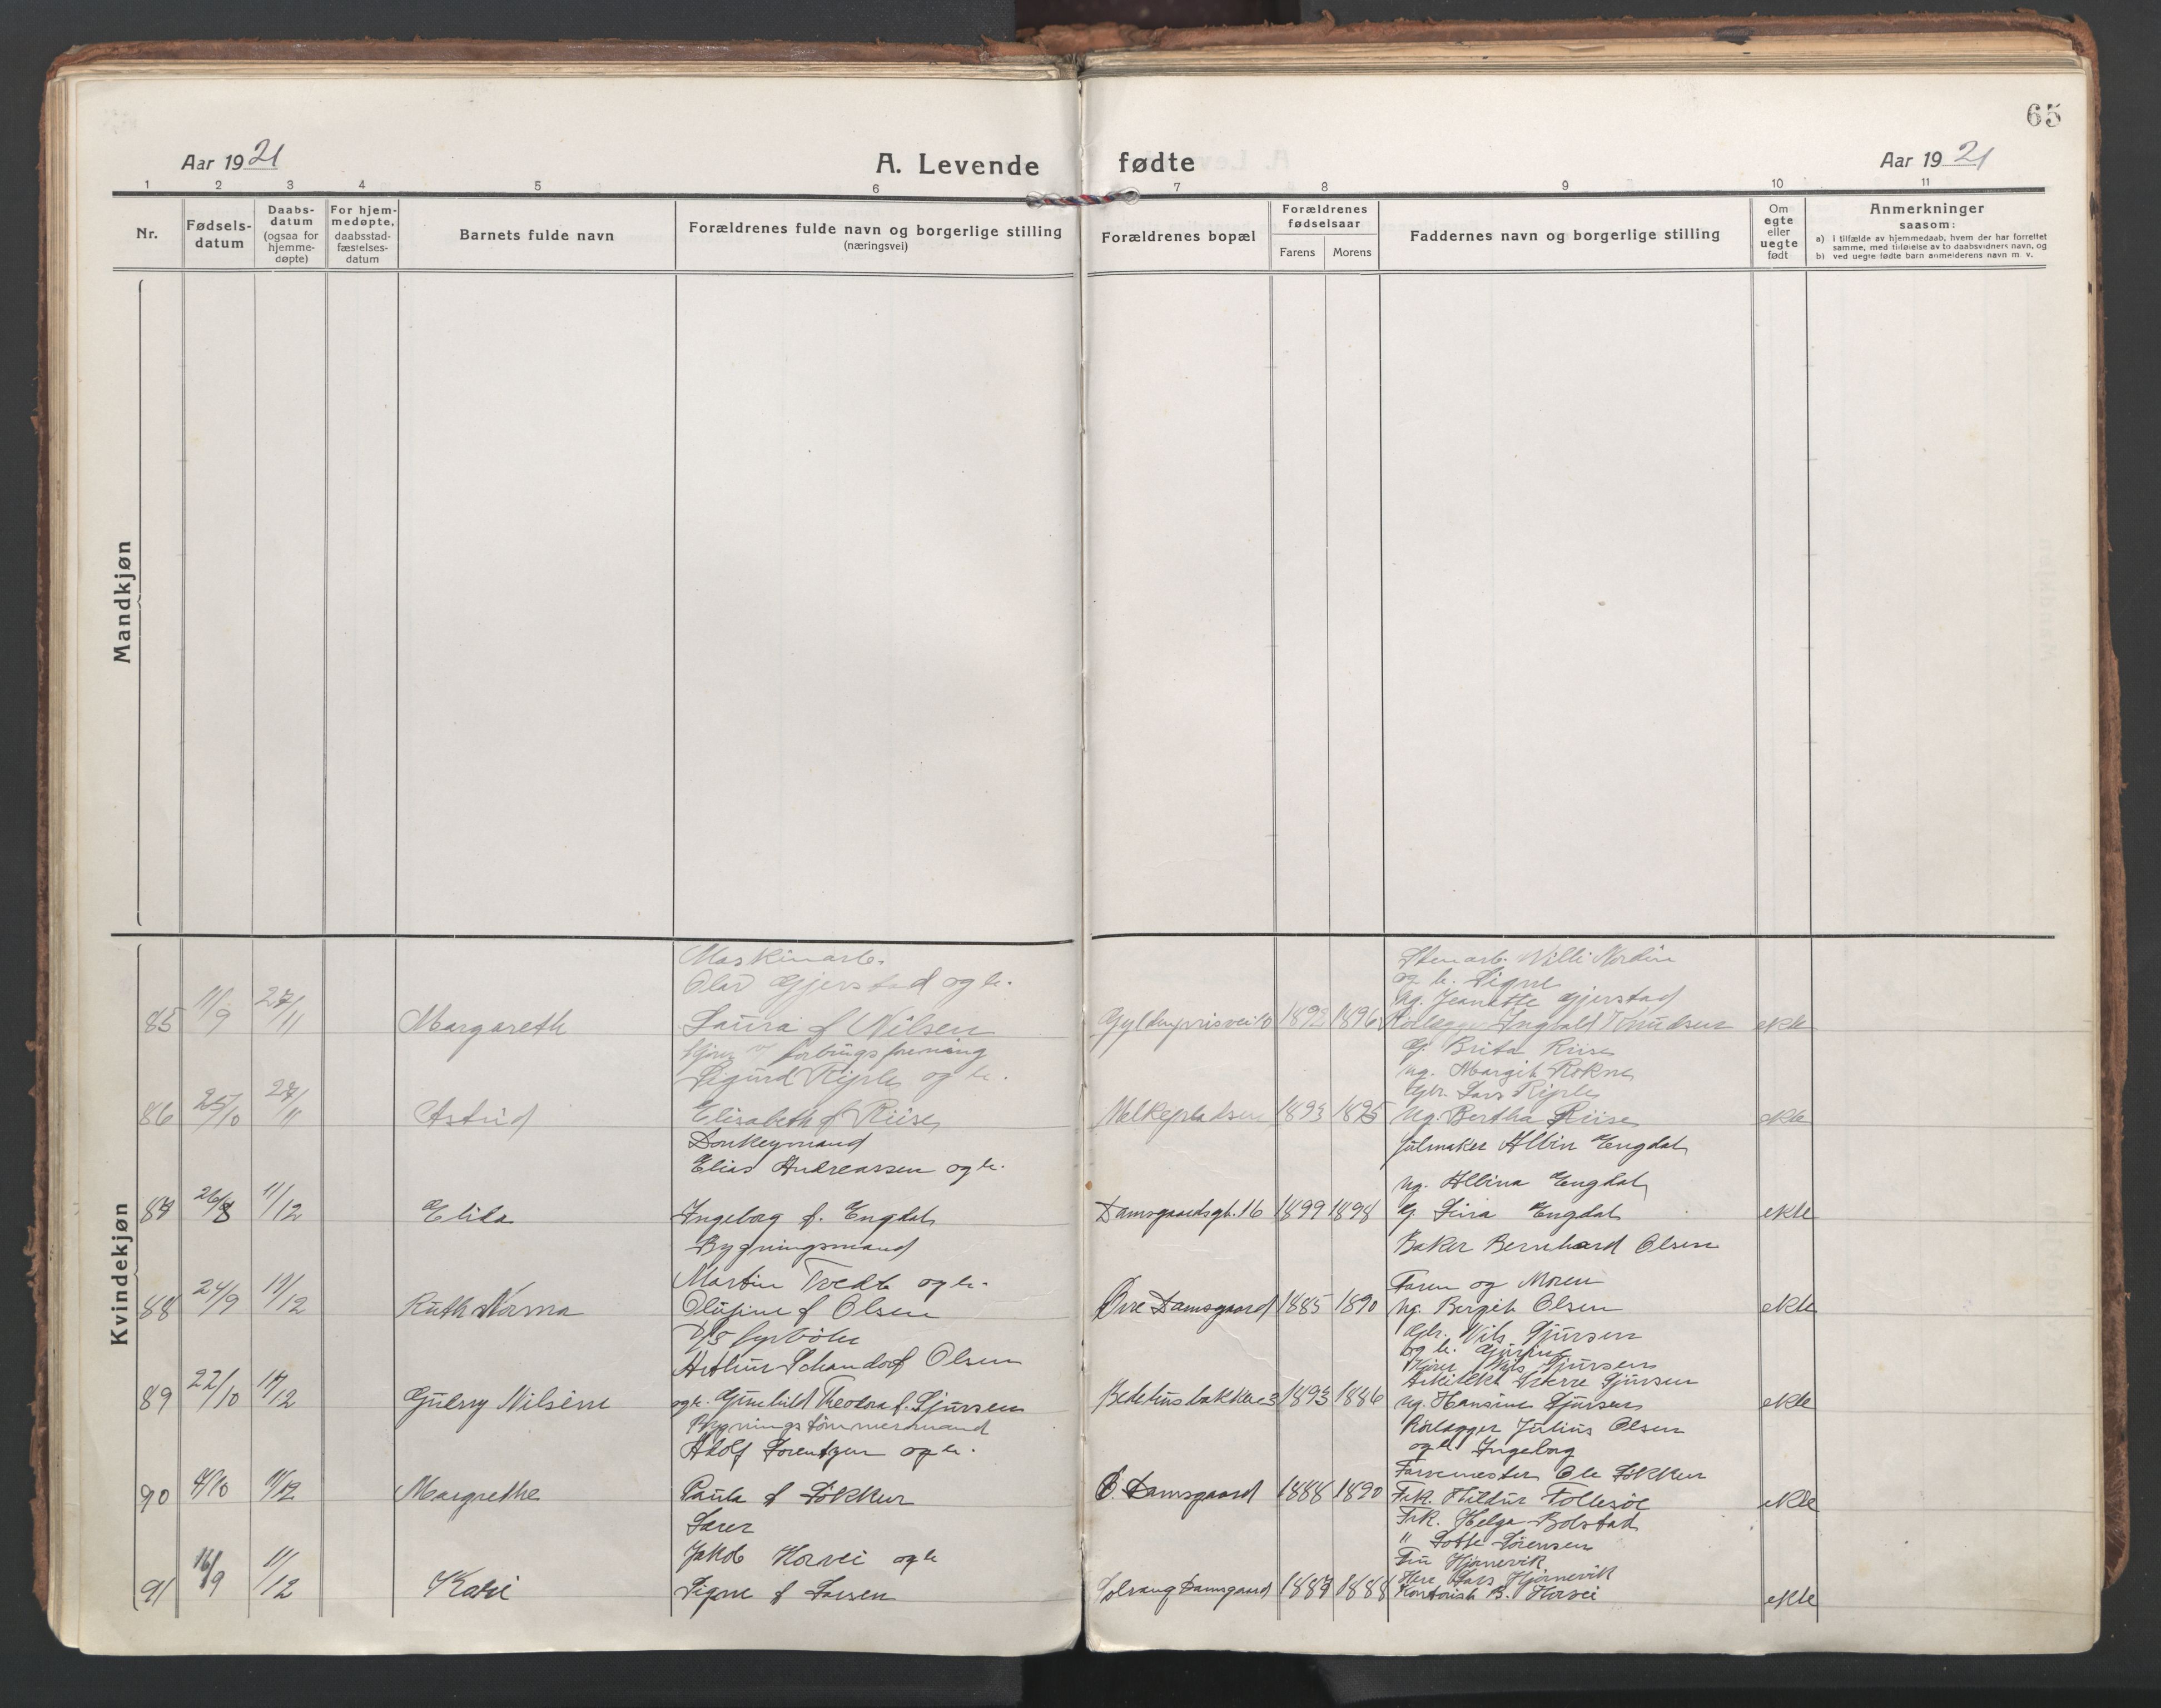 65
Aar 1921
A. Levende fødte
Aar 1921
1 2 3 4 5 6 7 8 9 10 11
Nr.
Fødsels-
datum
Daabs-
datum
(ogsaa for
hjemme-
døpte)
For hjem-
medøpte,
daabsstad-
fæstelses-
datum
Barnets fulde navn
Forældrenes fulde navn og borgerlige stilling
(næringsvei)
Forældrenes bopæl
Forældrenes
fødselsaar
Farens Morens
Faddernes navn og borgerlige stilling
Om
egte
eller
uegte
født
Anmerkninger
saasom:
a) i tilfælde av hjemmedaab, hvem der har forrettet
samme, med tilføielse av to daabsvidners navn, og
b) ved uegte fødte barn anmelderens navn m. v.
Mandkjøn
Kvindekjøn
85 11/9 27/11 Margareth
Maskinarb.
Olav Gjerstad og h.
Laura f Nilsen
Gyldenprisvei 10 1892 1896
Stenarb. Willi Nordin
og h. Signe
Ug. Jeanette Gjerstad
Rørlægger Ingvald Knudsen
ekte
86 25/10 27/11 Astrid
forbrugsforening
Sigurd Riple og h.
Elisabeth f Riise
Melkepladsen 1893 1895
G. Brita Riise
Ug. Margit Rokne
Gbr. Lars Riple
Ug. Bertha Riise
ekte
87 26/8 11/12 Elida
Donkeymand
Elias Andreassen og h.
Ingeborg f. Engdal
Damsgaardsgt. 16 1899 1898
Julmaker Albin Engdal
Ug. Albina Engdal
G Lina Engdal
ekte
88 24/9 11/12 Ruth Norma
Bygningsmand
Martin Tvedt og h.
Olufine f Olsen
Øvre Damsgaard 1885 1890
Baker Bernhard Olsen
Faren og Moren
Ug. Bergit Olsen
ekte
89 22/10 11/12 Gulery Nilsine
D/S fyrbøter
Arthur Schandorf Olsen
og h. Gunhild Theodora f. Sjursen
Bedehusbakken 3 1893 1886
Gbr. Nils Sjursen
og h. Gurine
Kjører Nils Sjursen
Arkitekt Sverre Sjursen
Ug. Hansine Sjursen
ekte
90 4/10 11/12 Margrethe
Bygningstømmermand
Adolf Lorentzen og h.
Paula f Løkker
Ø. Damsgaard 1888 1890
Rørlægger Julius Olsen
og h Ingeborg
Farvemester Ole Løkker
Frk. Hildur Tollesøe
ekte
91 16/9 11/12 Kari
Lærer
Jakob Horvei og h
Signe f Larsen
Solvang Damsgaard 1887 1888
Frk. Helga Bolstad
" Lotte Sørensen
Fru Hjørnevik
Herr Lars Hjørnevik
Kontorist B. Horvei
ekte